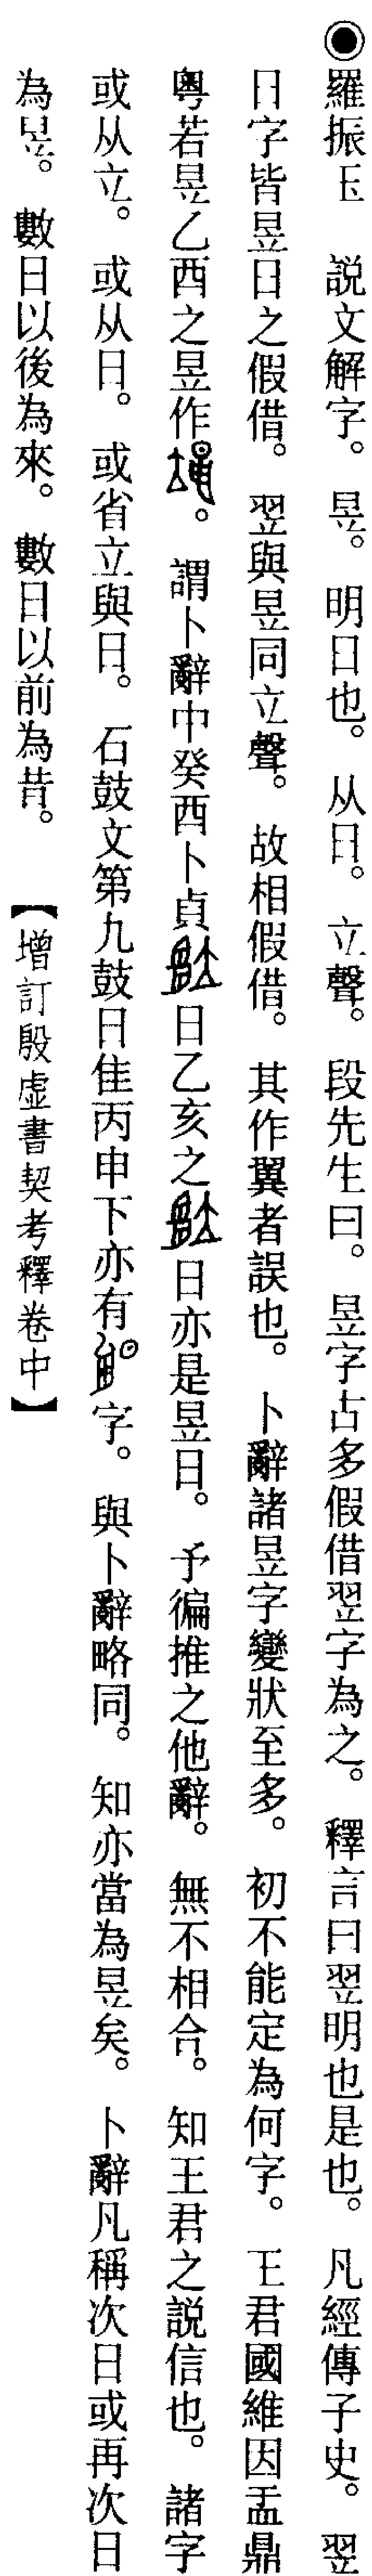 ◉羅振玉　說文解字。昱。明日也。从日。立聲。段先生曰。昱字古多假借翌字為之。釋言曰翌明也是也。凡經傳子史。翌
日字皆昱日之假借。翌與昱同立聲。故相假借。其作翼者誤也。卜辭諸昱字變狀至多。初不能定為何字。王君國維因盂鼎
粵若昱乙酉之昱作。謂卜辭中癸酉卜貞日乙亥之日亦是昱日。予徧推之他辭。無不相合。知王君之説信也。諸字
或从立。或从日。或省立與日。石鼓文第九鼓日隹丙申下亦有字。與卜辭略同。知亦當為昱矣。卜辭凡稱次日或再次日
為昱。數日以後為來。數日以前為昔。【增訂殷虛書契考釋卷中】